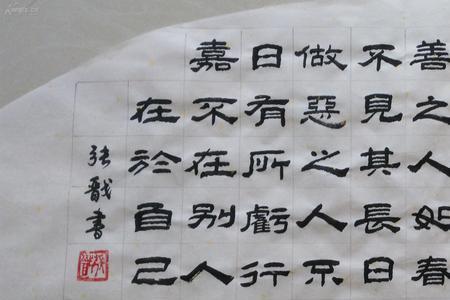 善之人如春
不見其長日
做惡之人不
日有所虧行
嘉不在别人
在於自己
张書